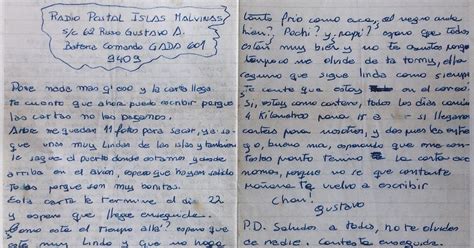 RADIO POSTAL ISLAS MALVINAS
S/C 62 Ruso Gustavo A.
Bateria Comando GADA 601
9409
Pone nada mas g/ eso y la carta llega.
Te cuento que ahora puedo escribir porque
las cartas no las pagamos.
me quedan 11 fotos para sacar, ya sa-
que unas muy lindas de las islas y tambien
le saque al puerto donde estamos y desde
arriba en el avion, espero que hayan salido
Todas porque son muy bonitas.
Esta carta la termine el dia 22
y espero que llegue enseguida.
Como esta el tiempo alla? espero que
este muy lindo y que no haga
tanto frio como aca, el negro anda
bien? Pochi? y papi? espero que todos
esten muy bien y no te asustes porque
tampoco me olvide de la tormy, ella
seguro que sigue linda como siempre
Te conte que estoy en el correo.
Si, estoy como cartero, todos los dias camino
4 kilometros para ir a si llegaron
cartas para nosotros, y dos pues les esto-
y, bueno ma, esperando que me con-
testes pronto termino la carta ace
nomas, porque no se que contarte
mañana te vuelvo a escribir
Chau!
Gustavo
P.D. Saludos a todos, no te olvides
de nadie. Contesta enseguida.